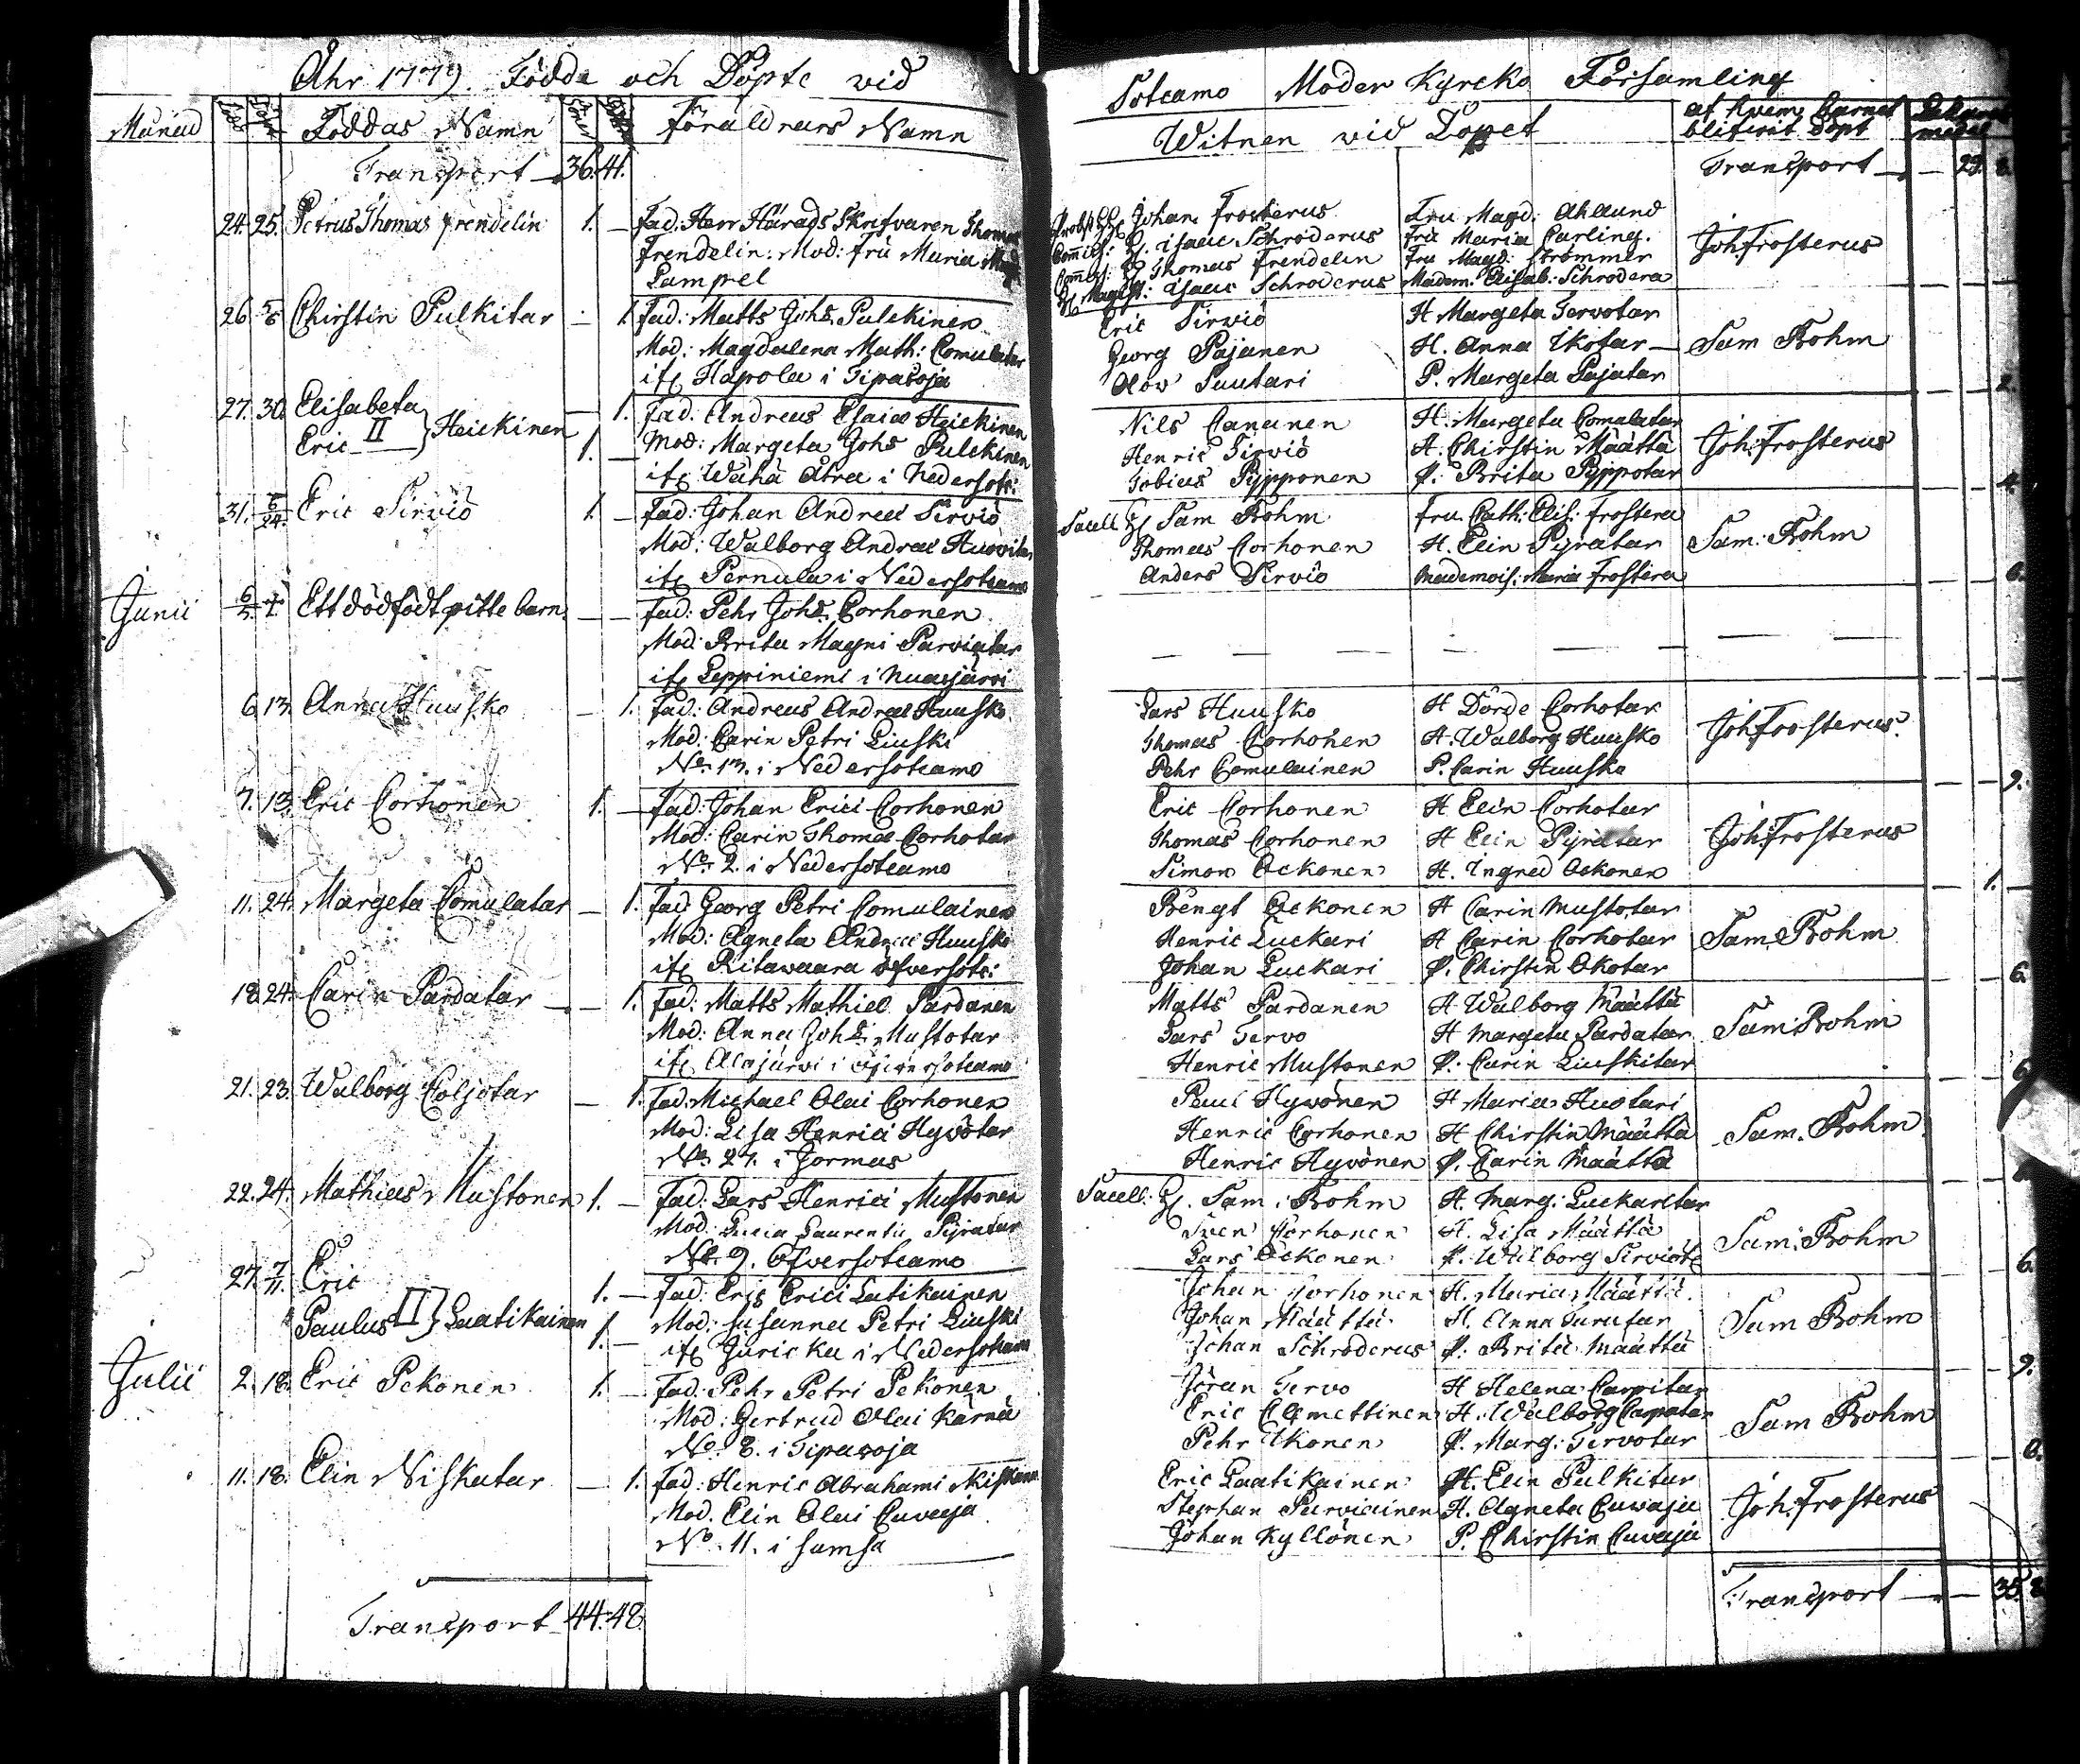 Åhr 1779. Födde och Döpte vid
Månad Född Döpt Föddas Namn Söner Föräldrars Namn
Transport 36. 41.
24. 25. Petrus Thomas Frendelin 1. — Fad: Herr Härads Skrifvaren Thomas
Frendelin: Mod: Fru Maria
Lampel
26. 5/6 Chirstin Pulkitar — 1. Fad: Matts Johs. Pulckinen
Mod: Magdalena Math: Comulatar
if: Hapola i Tipasoja
27. 30. Elisabeta — 1. Fad: Andreas Esaiæ Heickinen
Eric II } Heickinen 1. — Mod: Margeta Johs Pulckinen
if: Wähä Ätra i Nedersotc:
31. 6/24. Eric Sirviö 1. — Fad: Johan Andreæ Sirviö
Mod: Walborg Andreæ
if: Pernula i Nedersotcamo
Junii Ett dödfödt pitte barn — — Fad: Pehr Johs. Corhonen
Mod: Brita Magni Parviatar
if: Leppiniemi i Nuasjärvi
6. 13. Anna Huusko — 1. Fad: Andreas Andreæ Huusko
Mod: Carin Petri Liuski
No. 13. i Nedersotcamo
7. 13. Eric Corhonen 1. — Fad: Johan Erici Corhonen
Mod: Carin Thomæ Corhotar
No. 2. i Nedersotcamo
11. 24. Margeta Comulatar — 1. Fad Georg Petri Comulainen
Mod: Agneta Andreæ Huusko
if: Ritavaara öfversotc:
18. 24. Carin Pardatar — 1. Fad: Matts Mathiæ Pardanen
Mod: Anna Johs: Mustotar
if: Alajärvi i öfversotcamo
21. 23. Walborg Coljotar — 1. Fad: Michael Olai Corhonen
Mod: Lisa Henrici Hyvötar
No. 27. i Jormas
22. 24. Mathias Mustonen 1. — Fad: Lars Henrici Mustonen
Mod: Lucia Laurentii Pyratar
No. 9. Öfversotcamo
27. 7/11. Eric 1. — Fad: Eric Erici Latikainen
Paulus II } Laatikainen 1. — Mod: Susanna Petri Liuski
if: Juricka i Nedersotcam
Julii 2. 18. Eric Pekonen 1. — Fad: Pehr Petri Pekonen
Mod: Gertrud Olai Kärnä
No. 8. i Tipasoja
11. 18. Elin Niskatar — 1. Fad: Henric Abrahami Niskanen
Mod. Elin Olai Cuvaja
No. 11. i Sumsa
Transport 44. 48.
Sotcamo Moder Kyrcko Församling
Witnen vid Dopet af hvem barnet blifvit döpt
Transport — 29. 8.
Probst H: Johan Frosterus Fru Magd: Ahllund
Commiss: H: Isaac Schroderus Fru Maria Carling. Joh Frosterus
H: Thomas Frendelin Fru Magd: Strömmer
H: Magist: Isaac Schroderus Madem: Elisab: Schrodera
Eric Sirviö H Margeta Tervotar
Georg Pajanen H. Anna Ikotar Sam Bohm
Olov Suutari P. Margeta Pajatar 2.
Nils Cananen H: Margeta Comulatar
Henric Sirviö H. Chirstin Määttä Joh: Frosterus
Tobias Pypponen P: Brita Pyppotar 4.
Sacell H: Sam Bohm Fru Cath: Elis: Frostera
Thomas Corhonen H. Elin Pyratar Sam: Bohm
Anders Sirviö Mademois: Maria Frostera 6.
— — — — — — —
Lars Huusko H Dörde Corhotar
Thomas Corhonen H: Walborg Huusko Joh Frosterus.
Pehr Comulainen P. Carin Huusko 9.
Eric Corhonen H Elin Corhotar
Thomas Corhonen H Elin Pyratar Joh: Frosterus
Simon Ockonen H. Ingred Ockonen 1. —
Bengt Ockonen H Carin Mustotar
Henric Luckari H Carin Corhotar Sam: Bohm
Johan Luckari P. Chirstin Okotar 6.
Matts Pardanen H Walborg Määttä
Lars Tervo H Margeta Pardatar Sam: Bohm
Henric Mustonen P. Carin Liuskitar 6.
Paul Hyvönen H Maria Huotari
Henric Corhonen H Chirstin Määttä Sam. Bohm
Henric Hyvönen P. Carin Määttä
Sacell: H. Sam: Bohm H. Marg: Luckaritar
Sven Corhonen H. Lisa Määttä Sam: Bohm
Lars Ockonen P. Walborg Sirviöt 6.
Johan Corhonen H. Maria Määttä.
Johan Määttä H. Anna Sam Bohm
Johan Schroderus P. Brita Määttä 9.
Jöran Tervo H Helena
Eric Clemettinen H. Walborg Sam Bohm
Pehr Ikonen P. Marg: Tervotar
Eric Laatikainen H. Elin Pulkitar
Stephan Parviainen H. Agneta Cuvaja Joh: Frosterus
Johan Kyllönen P. Chirstin Cuvaja
Transport — 35. 8